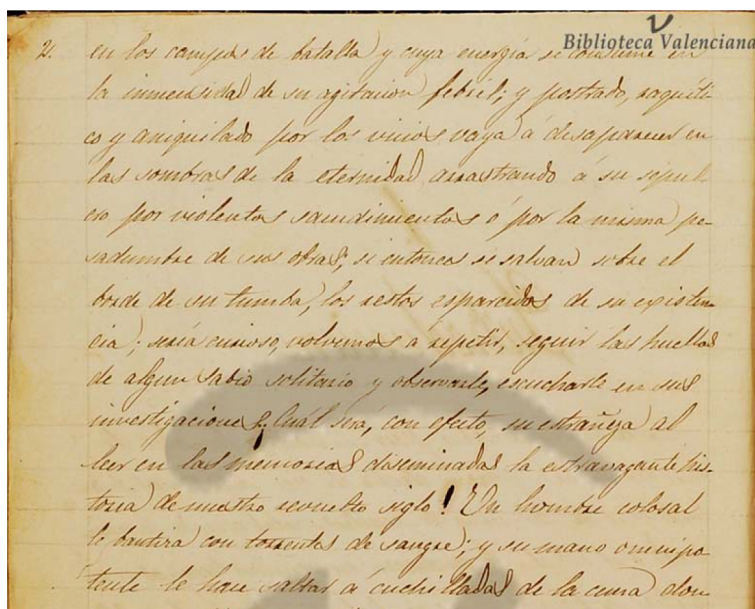 Biblioteca Valenciana
2. en los campos de batalla y cuya energía se consume en
la inmensidad de su agitacion febril; y postrado, raquíti-
co y aniquilado por los vicios vaya á desaparecer en
las sombras de la eternidad arrastrando á su sepul-
cro por violentos sacudimientos ó por la misma pe-
sadumbre de sus obras; si entonces se salvan sobre el
borde de su tumba, los restos esparcidos de su existen-
cia; sería curioso, volvemos á repetir, seguir las huellas
de algun sabio solitario y observarle, escucharle en sus
investigaciones. Cuál será, con efecto, su estrañeza al
leer en las memorias diseminadas la estravagante his-
toria de nuestro revuelto siglo! Un hombre colosal
le bautiza con torrentes de sangre; y su mano omnipo-
tente le hace saltar á cuchilladas de la cuna don-